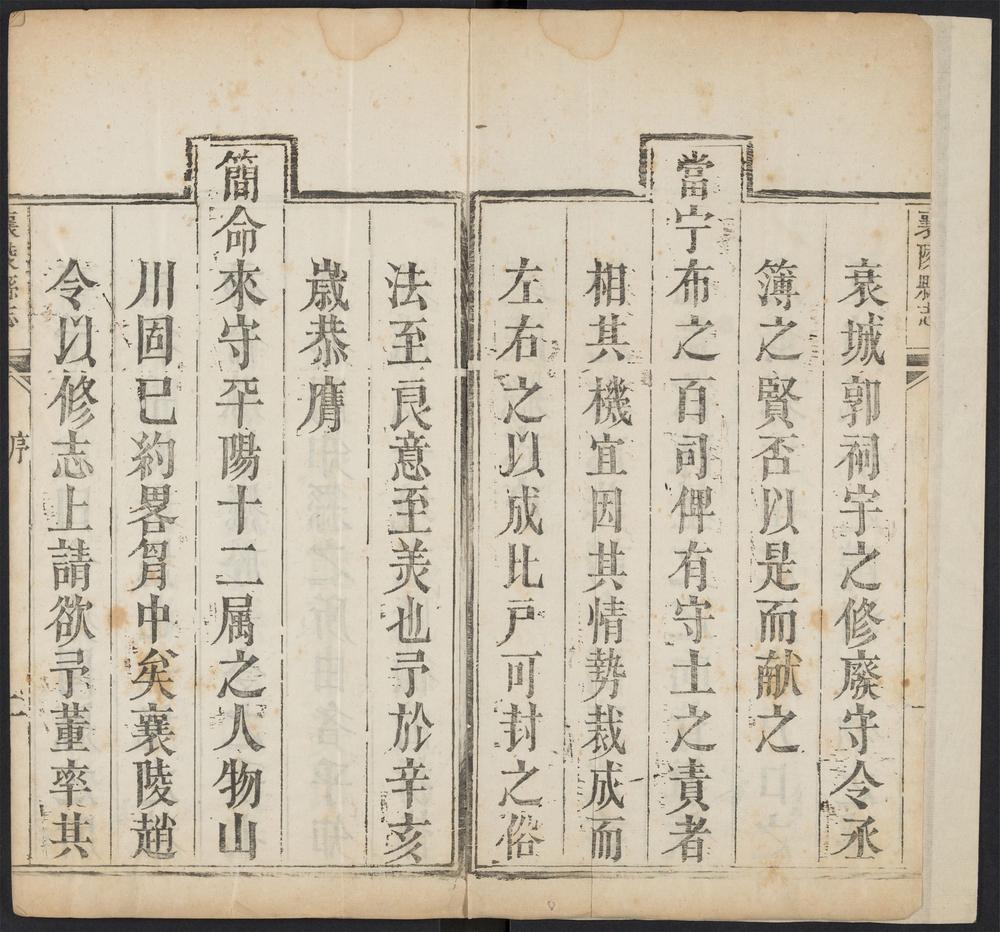 襄陵縣志
衰城郭祠宇之修廢守令丞
簿之賢否以是而献之
當宁布之百司俾有守土之責者
相其機宜因其情勢裁成而
左右之以成比戸可封之俗
法至良意至羙也予於辛亥
歳恭膺
簡命來守平陽十二属之人物山
川固已約畧胷中矣襄陵趙
令以修志上請欲予董率其
襄陵縣志
序
二